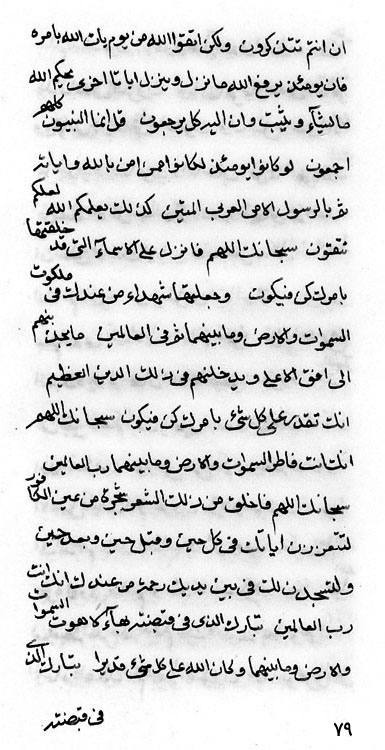 ان انتم تتذكرون ولكن اتقوا الله من يوم يات الله بامره
فان يومئذ يرفع الله ما نزل وينزل ايات اخرى يحكم الله
ما يشآء ويثبت وان اليه كل يرجعون قل انما النبيون كلهم
اجمعون لو كانوا يومئذ لكانوا ممن امن بالله واياته
ثم بالرسول الامى العربى المتين كذلك يعلمكم الله لعلكم
تتقون سبحانك اللهم فانزل على الاسمآء التى قد خلقتها
بامرك كن فيكون وجعلتها شهداء من عندك فى ملكوت
السموات والارض وما بينهما ثم فى العالمين بينهم
الى افق الاعلى ويدخلنهم فى ذلك الدين العظيم
انك تقدر على كل شئ بامرك كن فيكون سبحانك اللهم
انك انت فاطر السموات والارض وما بينهما رب العالمين
سبحانك اللهم فاخلق من ذلك شجرة من عين الكافور
اياتك فى كل حين وقبل حين وبعد حين
وليسجدن لك فى بين يديك رحمة من عندك انك انت
رب العالمين تبارك الذى فى قبضته السموات
والارض وما بينهما وكان الله على كل شئ قديرا تبارك الذى
فى قبضته
٧٩